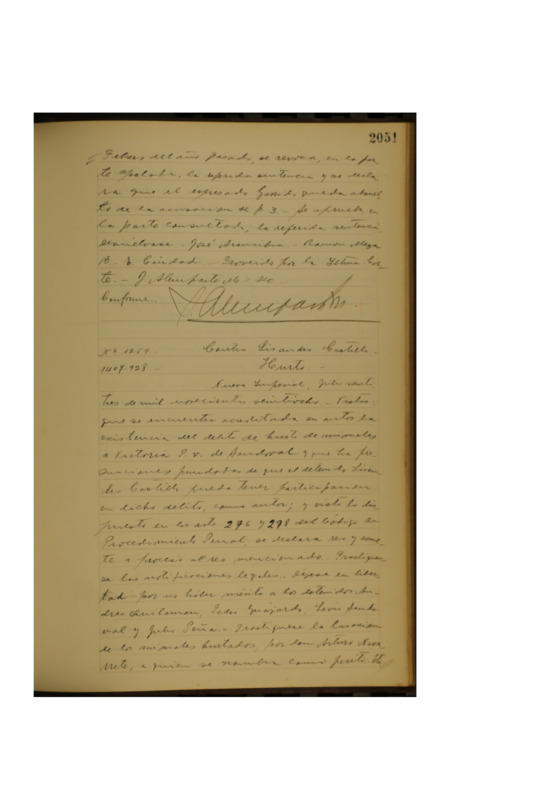 2051
Febrero del año pasado, se revoca, en la par
te apelada, la referida sentencia y se decla
ra que el expresado Garrido queda absuel
to de la acusacion de f. 3. - Se aprueba en
la parte consultada, la referida sentencia
Devuélvase. José Aramendia. Ramon Mega
B. Z. Ciudad. Proveido por la Iltma Cor
te. - J. Alemparte M. Sec
Conforme.
J. Alemparte
N° 1259. Contra Lisandro Castillo.
1409.928. Hurto -
Nueva Imperial, Julio veinti
tres de mil novecientos veintiocho. - Vistos:
que se encuentra acreditada en autos la
existencia del delito de hurto de animales
a Victoria P. v. de Sandoval y que hai pre
sunciones fundadas de que el detenido Lisan
dro Castillo pueda tener participacion
en dicho delito, como autor; y visto lo dis
puesto en los arts 276 y 298 del Código de
Procedimiento Penal, se declara reo y some
te a proceso al reo mencionado. Practíquen
se las notificaciones legales. Déjese en liber
tad por no haber mérito a los detenidos An
dres Quilaman, Pedro Guajardo, Luis Sando
val y Julio Peña. - Practíquese la tasacion
de los animales hurtados, por don Arturo Nava
rrete, a quien se nombra como perito.